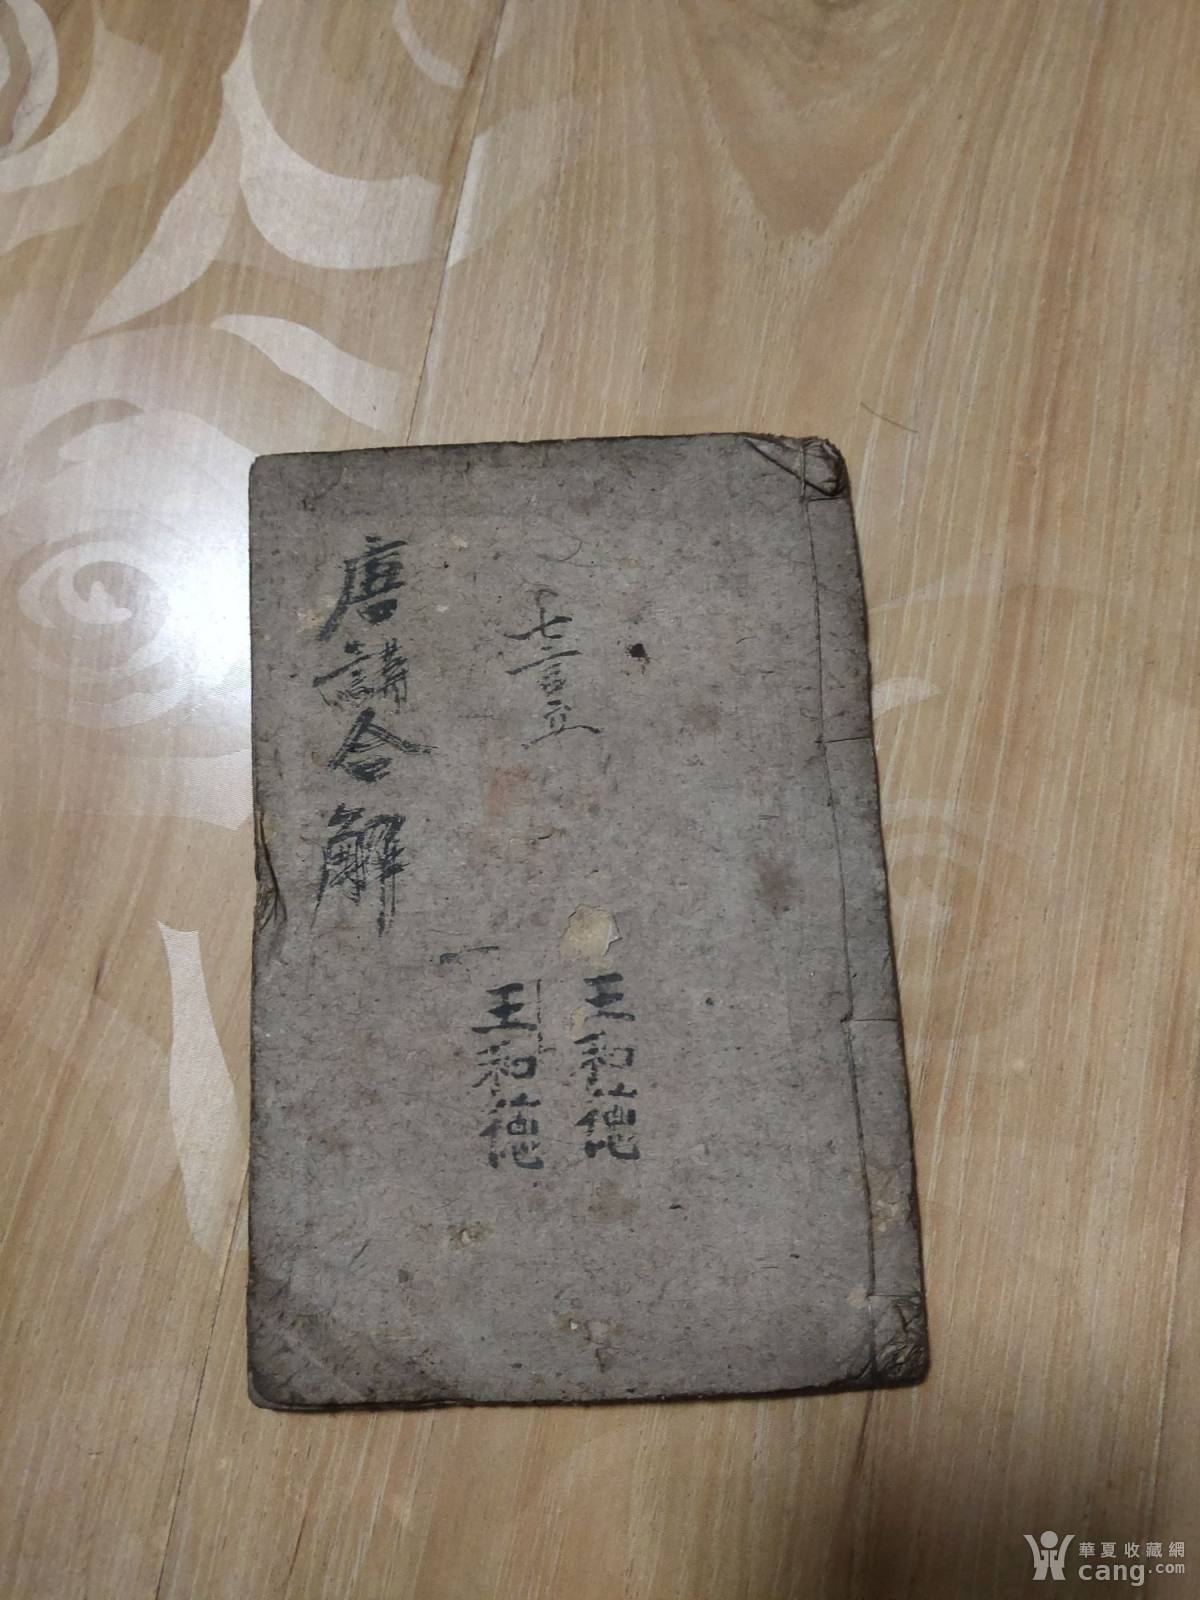 七言
王和德
王和德
一
唐講合解
華夏收藏網
cang.com